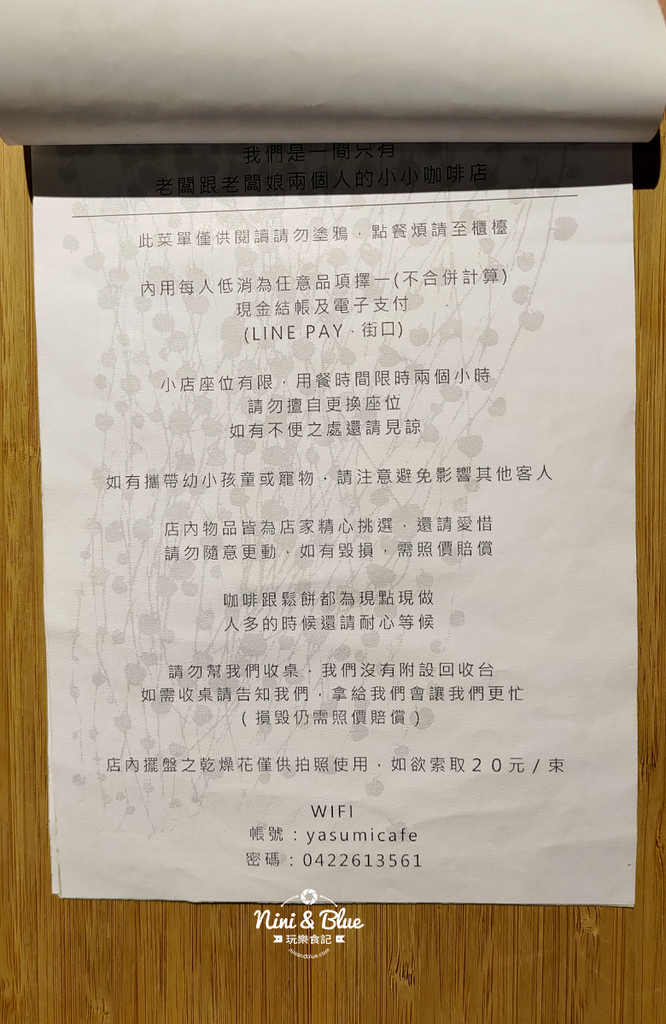 我們是一間只有
老闆跟老闆娘兩個人的小小咖啡店
此菜單僅供閱讀請勿塗鴉，點餐煩請至櫃檯
內用每人低消為任意品項擇一(不合併計算)
現金結帳及電子支付
(LINE PAY、街口)
小店座位有限，用餐時間限時兩個小時
請勿擅自更換座位
如有不便之處還請見諒
如有攜帶幼小孩童或寵物，請注意避免影響其他客人
店內物品皆為店家精心挑選，還請愛惜
請勿隨意更動，如有毀損，需照價賠償
咖啡跟鬆餅都為現點現做
人多的時候還請耐心等候
請勿幫我們收桌，我們沒有附設回收台
如需收桌請告知我們，拿給我們會讓我們更忙
(損毀仍需照價賠償)
店內擺盤之乾燥花僅供拍照使用，如欲索取２０元/束
WIFI
帳號：yasumicafe
密碼：0422613561
Nini & Blue
玩樂食記
niniandblue.com